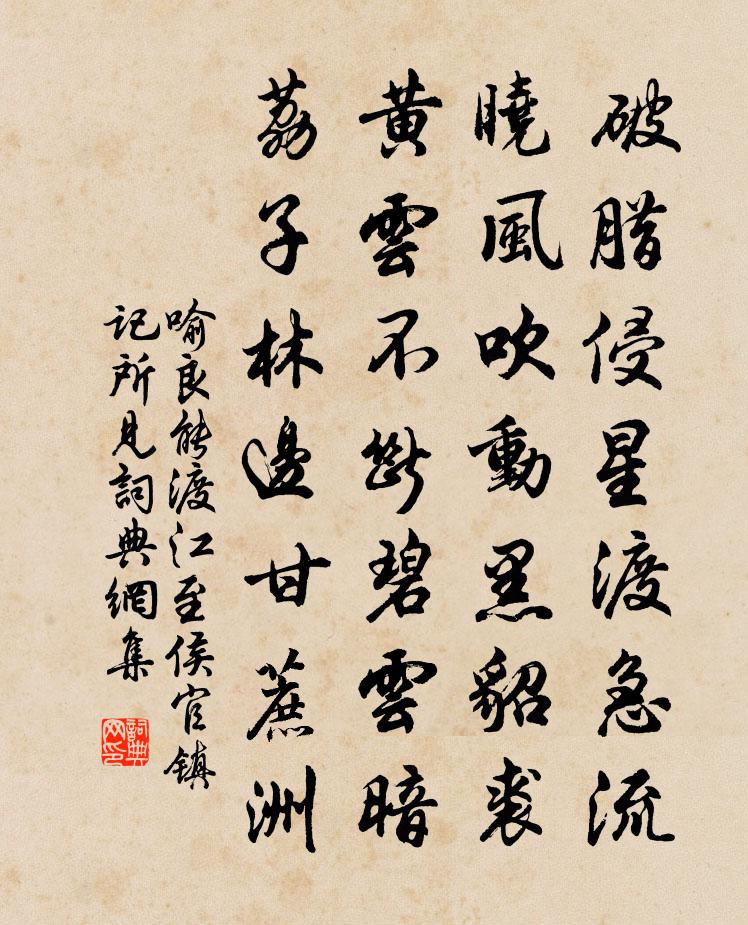 破腊侵星渡急流
曉風吹動黑貂裘
黃雲不斷碧雲暗
荔子林邊甘蔗洲
喻良能渡江至侯官鎮
記所見詞典網集
詞典网印